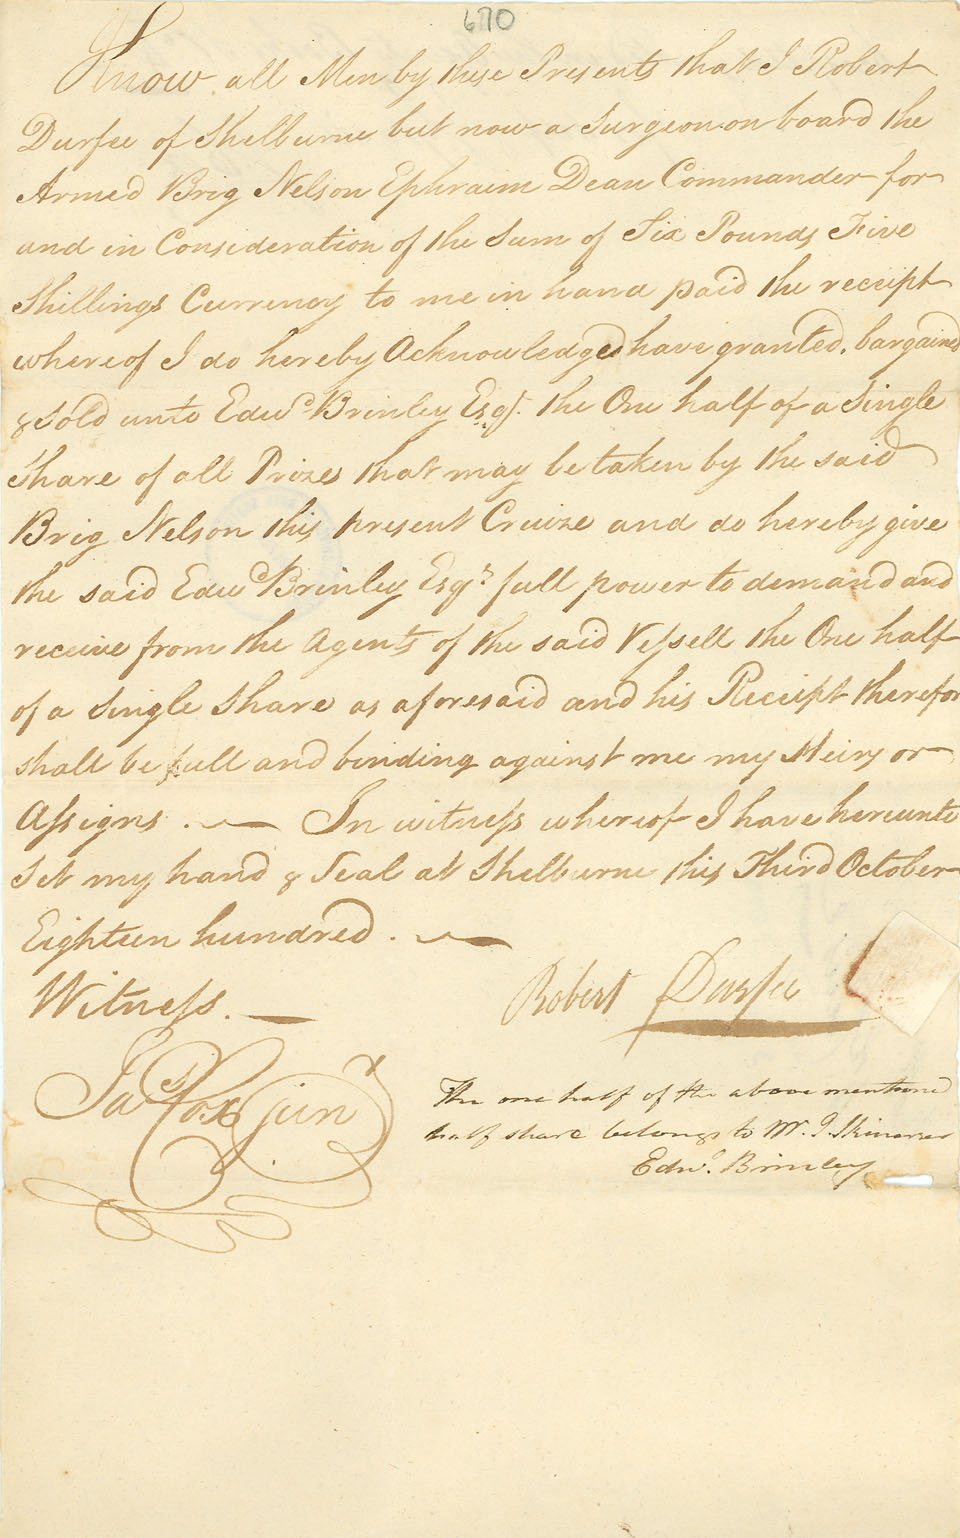 670
Know all Men by these Presents that I Robert
Durfee of Shelburne but now a Surgeon on board the
Armed Brig Nelson Ephraim Dean Commander for
and in Consideration of the Sum of Six Pounds Five
Shillings Currency to me in hand paid the receipt
whereof I do hereby Acknowledged have granted, bargained
& Sold unto Edwd Brinley Esqr. the One half of a Single
Share of all Prizes that may be taken by the said
Brig Nelson this present Cruize and do hereby give
the said Edwd Brinley Esqr full power to demand and
receive from the Agents of the said Vessell the One half
of a Single Share as aforesaid and his Receipt therefor
shall be full and binding against me my Heirs or
Assigns. — In witness whereof I have hereunto
Set my hand & Seal at Shelburne this Third October
Eighteen hundred. —
Witness. —
Robert Durfee
Jas Cox junr
The one half of the above mentioned
half share belongs to Mr. J. Skinner
Edwd. Brinley